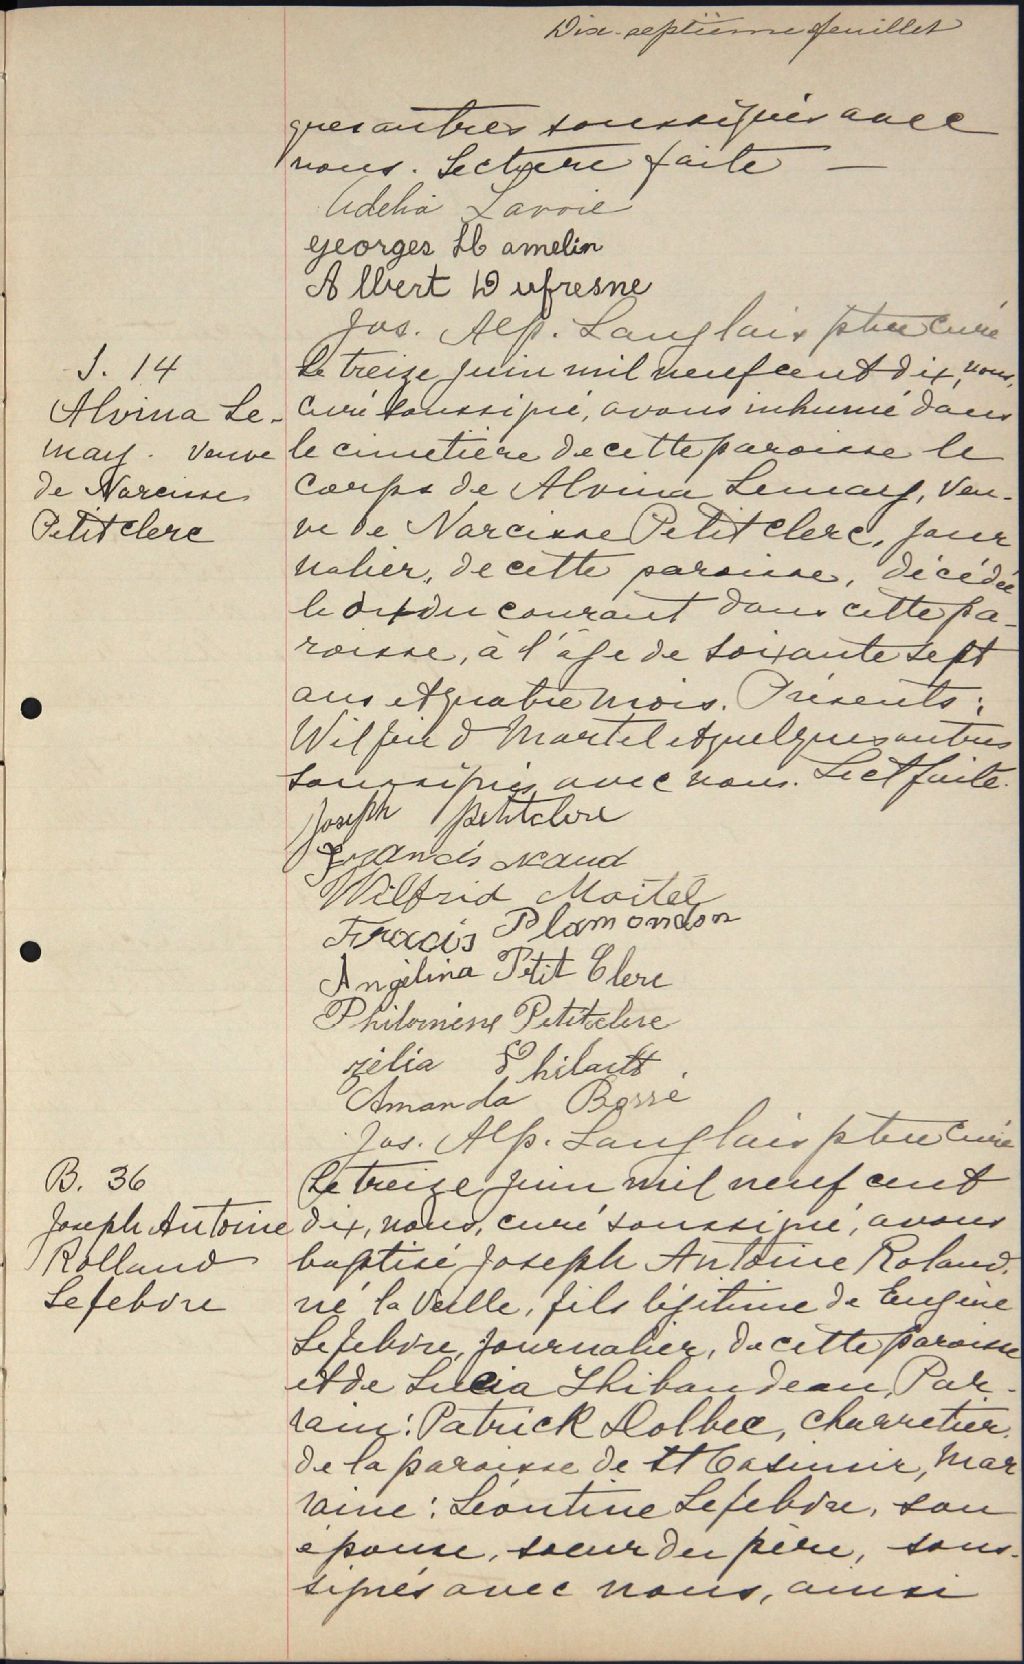 Dix-septième feuillet
ques autres soussignés avec
nous. Lecture faite —
Adelia Lavoie
Georges Hamelin
Albert Dufresne
Jos. Alp. Langlais ptre curé
S. 14
Alvina Le-
may. veuve
de Narcisse
Petitclerc
Le treize juin mil neuf cent dix, nous,
curé soussigné, avons inhumé dans
le cimetière de cette paroisse le
corps de Alvina Lemay, veu-
ve de Narcisse Petitclerc, jour
nalier, de cette paroisse, décédée
le dix du courant dans cette pa-
roisse, à l'âge de soixante sept
ans et quatre mois. Présents:
Wilfrid Martel et quelques autres
soussignés avec nous. Lect faite.
Joseph petitclerc
Francis Naud
Wilfrid Martel
Fracis Plamondon
Angélina Petit Clerc
Philomène Petitclerc
zélia
Amanda Bossé
Jos. Alp. Langlais ptre curé
B. 36
Joseph Antoine
Rolland
Lefebvre
Le treize juin mil neuf cent
dix, nous, curé soussigné, avons
baptisé Joseph Antoine Roland,
né la veille, fils légitime de Eugène
Lefebvre, journalier, de cette paroisse
et de Lucia Thibaudeau, Par-
rain: Patrick Dolbec, charretier,
de la paroisse de St Casimir, mar
raine: Léontine Lefebvre, son
épouse, soeur du père, sous-
signés avec nous, ainsi